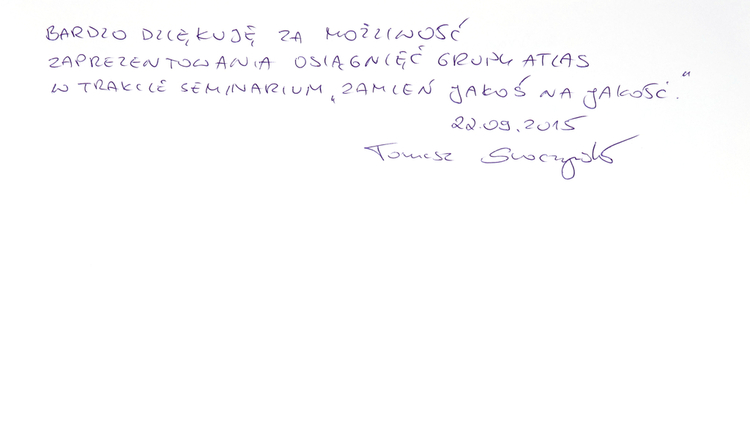 BARDZO DZIĘKUJĘ ZA MOŻLIWOŚĆ
ZAPREZENTOWANIA OSIĄGNIĘĆ GRUPY ATLAS
W TRAKCIE SEMINARIUM „ZAMIEŃ JAKOŚ NA JAKOŚĆ."
22.09.2015
Tomasz